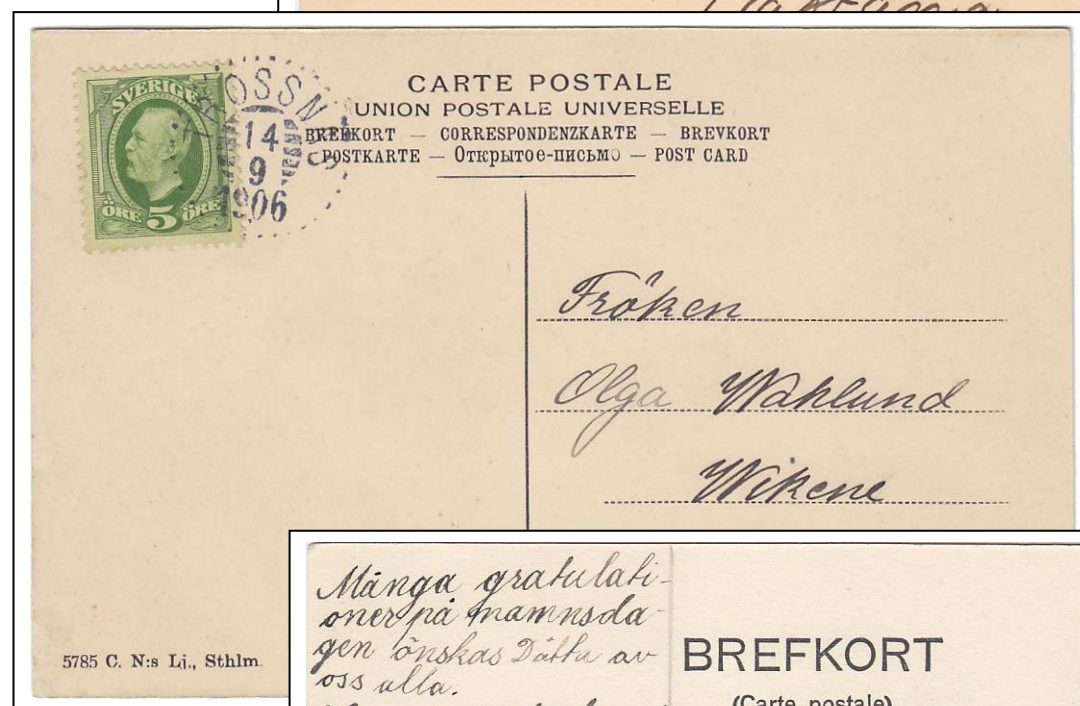 SVERIGE
ÖRE 5 ÖRE
14
9
1906
CARTE POSTALE
UNION POSTALE UNIVERSELLE
BREFKORT — CORRESPONDENZKARTE — BREVKORT
POSTKARTE — Открытое-письмо — POST CARD
Fröken
Olga Wahlund
Wikene
5785 C. N:s Lj., Sthlm.
Många gratulati-
oner på namnsda-
gen önskas Dötta av
oss alla.
BREFKORT
(Carte postale)